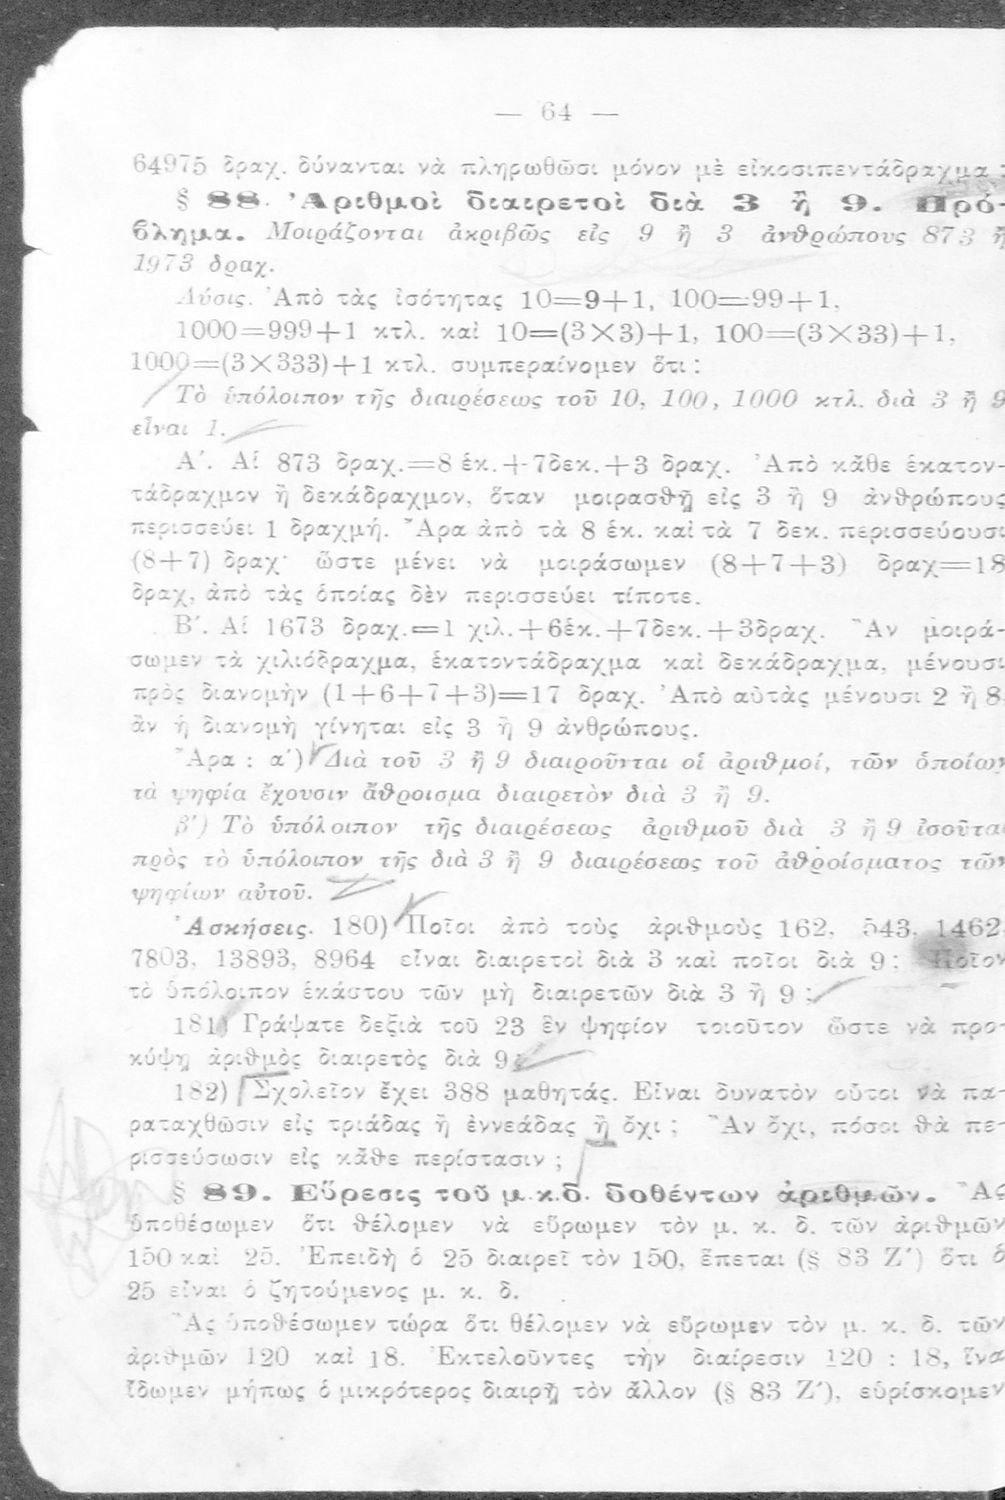 — 64 —
64975 δραχ. δύνανται νὰ πληρωθῶσι μόνον μὲ εἰκοσιπεντάδραχμα ;
§ 88. Ἀριθμοὶ διαιρετοὶ διὰ 3 ἢ 9. Πρό-
βλημα. Μοιράζονται ἀκριβῶς εἰς 9 ἢ 3 ἀνθρώπους 873 ἢ
1973 δραχ.
Λύσις. Ἀπὸ τὰς ἰσότητας 10=9+1, 100=99+1,
1000=999+1 κτλ. καὶ 10=(3×3)+1, 100=(3×33)+1,
1000=(3×333)+1 κτλ. συμπεραίνομεν ὅτι :
Τὸ ὑπόλοιπον τῆς διαιρέσεως τοῦ 10, 100, 1000 κτλ. διὰ 3 ἢ 9
εἶναι 1.
Α΄. Αἱ 873 δραχ.=8 ἑκ.+7δεκ.+3 δραχ. Ἀπὸ κάθε ἑκατον-
τάδραχμον ἢ δεκάδραχμον, ὅταν μοιρασθῇ εἰς 3 ἢ 9 ἀνθρώπους
περισσεύει 1 δραχμή. Ἄρα ἀπὸ τὰ 8 ἑκ. καὶ τὰ 7 δεκ. περισσεύουσι
(8+7) δραχ· ὥστε μένει νὰ μοιράσωμεν (8+7+3) δραχ=18
δραχ, ἀπὸ τὰς ὁποίας δὲν περισσεύει τίποτε.
Β΄. Αἱ 1673 δραχ.=1 χιλ.+6ἑκ.+7δεκ.+3δραχ. Ἂν μοιρά-
σωμεν τὰ χιλιόδραχμα, ἑκατοντάδραχμα καὶ δεκάδραχμα, μένουσι
πρὸς διανομὴν (1+6+7+3)=17 δραχ. Ἀπὸ αὐτὰς μένουσι 2 ἢ 8
ἂν ἡ διανομὴ γίνηται εἰς 3 ἢ 9 ἀνθρώπους.
Ἄρα : α΄) Διὰ τοῦ 3 ἢ 9 διαιροῦνται οἱ ἀριθμοί, τῶν ὁποίων
τὰ ψηφία ἔχουσιν ἄθροισμα διαιρετὸν διὰ 3 ἢ 9.
β΄) Τὸ ὑπόλοιπον τῆς διαιρέσεως ἀριθμοῦ διὰ 3 ἢ 9 ἰσοῦται
πρὸς τὸ ὑπόλοιπον τῆς διὰ 3 ἢ 9 διαιρέσεως τοῦ ἀθροίσματος τῶν
ψηφίων αὐτοῦ.
Ἀσκήσεις. 180) Ποῖοι ἀπὸ τοὺς ἀριθμοὺς 162, 543, 1462,
7803, 13893, 8964 εἶναι διαιρετοὶ διὰ 3 καὶ ποῖοι διὰ 9 ; Ποῖον
τὸ ὑπόλοιπον ἑκάστου τῶν μὴ διαιρετῶν διὰ 3 ἢ 9 ;
181) Γράψατε δεξιὰ τοῦ 23 ἓν ψηφίον τοιοῦτον ὥστε νὰ προ-
κύψῃ ἀριθμὸς διαιρετὸς διὰ 9.
182) Σχολεῖον ἔχει 388 μαθητάς. Εἶναι δυνατὸν οὗτοι νὰ πα-
ραταχθῶσιν εἰς τριάδας ἢ ἐννεάδας ἢ ὄχι ; Ἂν ὄχι, πόσοι θὰ πε-
ρισσεύσωσιν εἰς κάθε περίστασιν ;
§ 89. Εὕρεσις τοῦ μ.κ.δ. δοθέντων ἀριθμῶν. Ἂς
ὑποθέσωμεν ὅτι θέλομεν νὰ εὕρωμεν τὸν μ. κ. δ. τῶν ἀριθμῶν
150 καὶ 25. Ἐπειδὴ ὁ 25 διαιρεῖ τὸν 150, ἕπεται (§ 83 Ζ΄) ὅτι ὁ
25 εἶναι ὁ ζητούμενος μ. κ. δ.
Ἂς ὑποθέσωμεν τώρα ὅτι θέλομεν νὰ εὕρωμεν τὸν μ. κ. δ. τῶν
ἀριθμῶν 120 καὶ 18. Ἐκτελοῦντες τὴν διαίρεσιν 120 : 18, ἵνα
ἴδωμεν μήπως ὁ μικρότερος διαιρῇ τὸν ἄλλον (§ 83 Ζ΄), εὑρίσκομεν